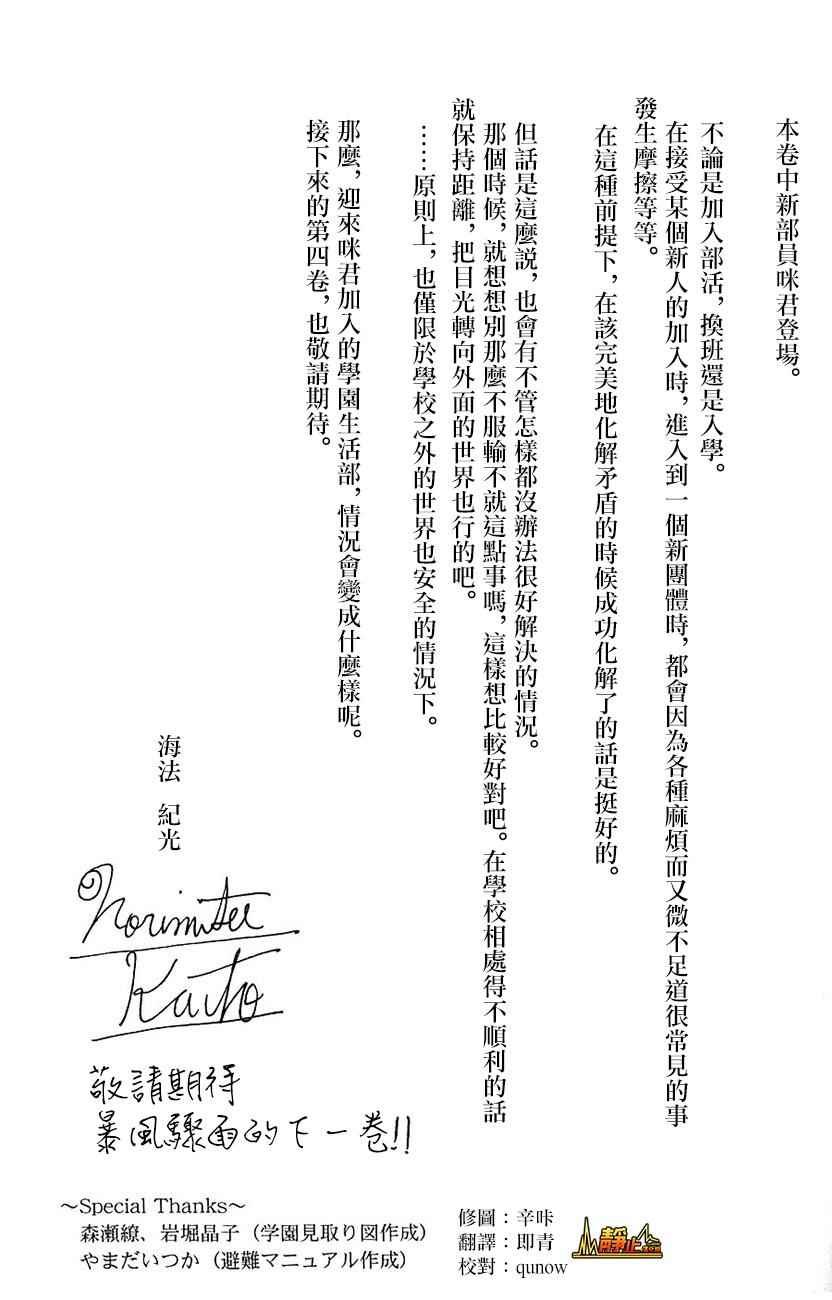 本卷中新部員咪君登場。
不論是加入部活，換班還是入學。
在接受某個新人的加入時，進入到一個新團體時，都會因為各種麻煩而又微不足道很常見的事
發生摩擦等等。
在這種前提下，在該完美地化解矛盾的時候成功化解了的話是挺好的。
但話是這麼說，也會有不管怎樣都沒辦法很好解決的情況。
那個時候，就想想別那麼不服輸不就這點事嗎，這樣想比較好對吧。在學校相處得不順利的話
就保持距離，把目光轉向外面的世界也行的吧。
……原則上，也僅限於學校之外的世界也安全的情況下。
那麼，迎來咪君加入的學園生活部，情況會變成什麼樣呢。
接下來的第四卷，也敬請期待。
海法 紀光
Norimitsu
Kaiho
敬請期待
暴風驟雨的下一卷!!
～Special Thanks～
森瀬繚、岩堀晶子（学園見取り図作成）
やまだいつか（避難マニュアル作成）
修圖：辛咔
翻譯：即青
校對：qunow
靜止